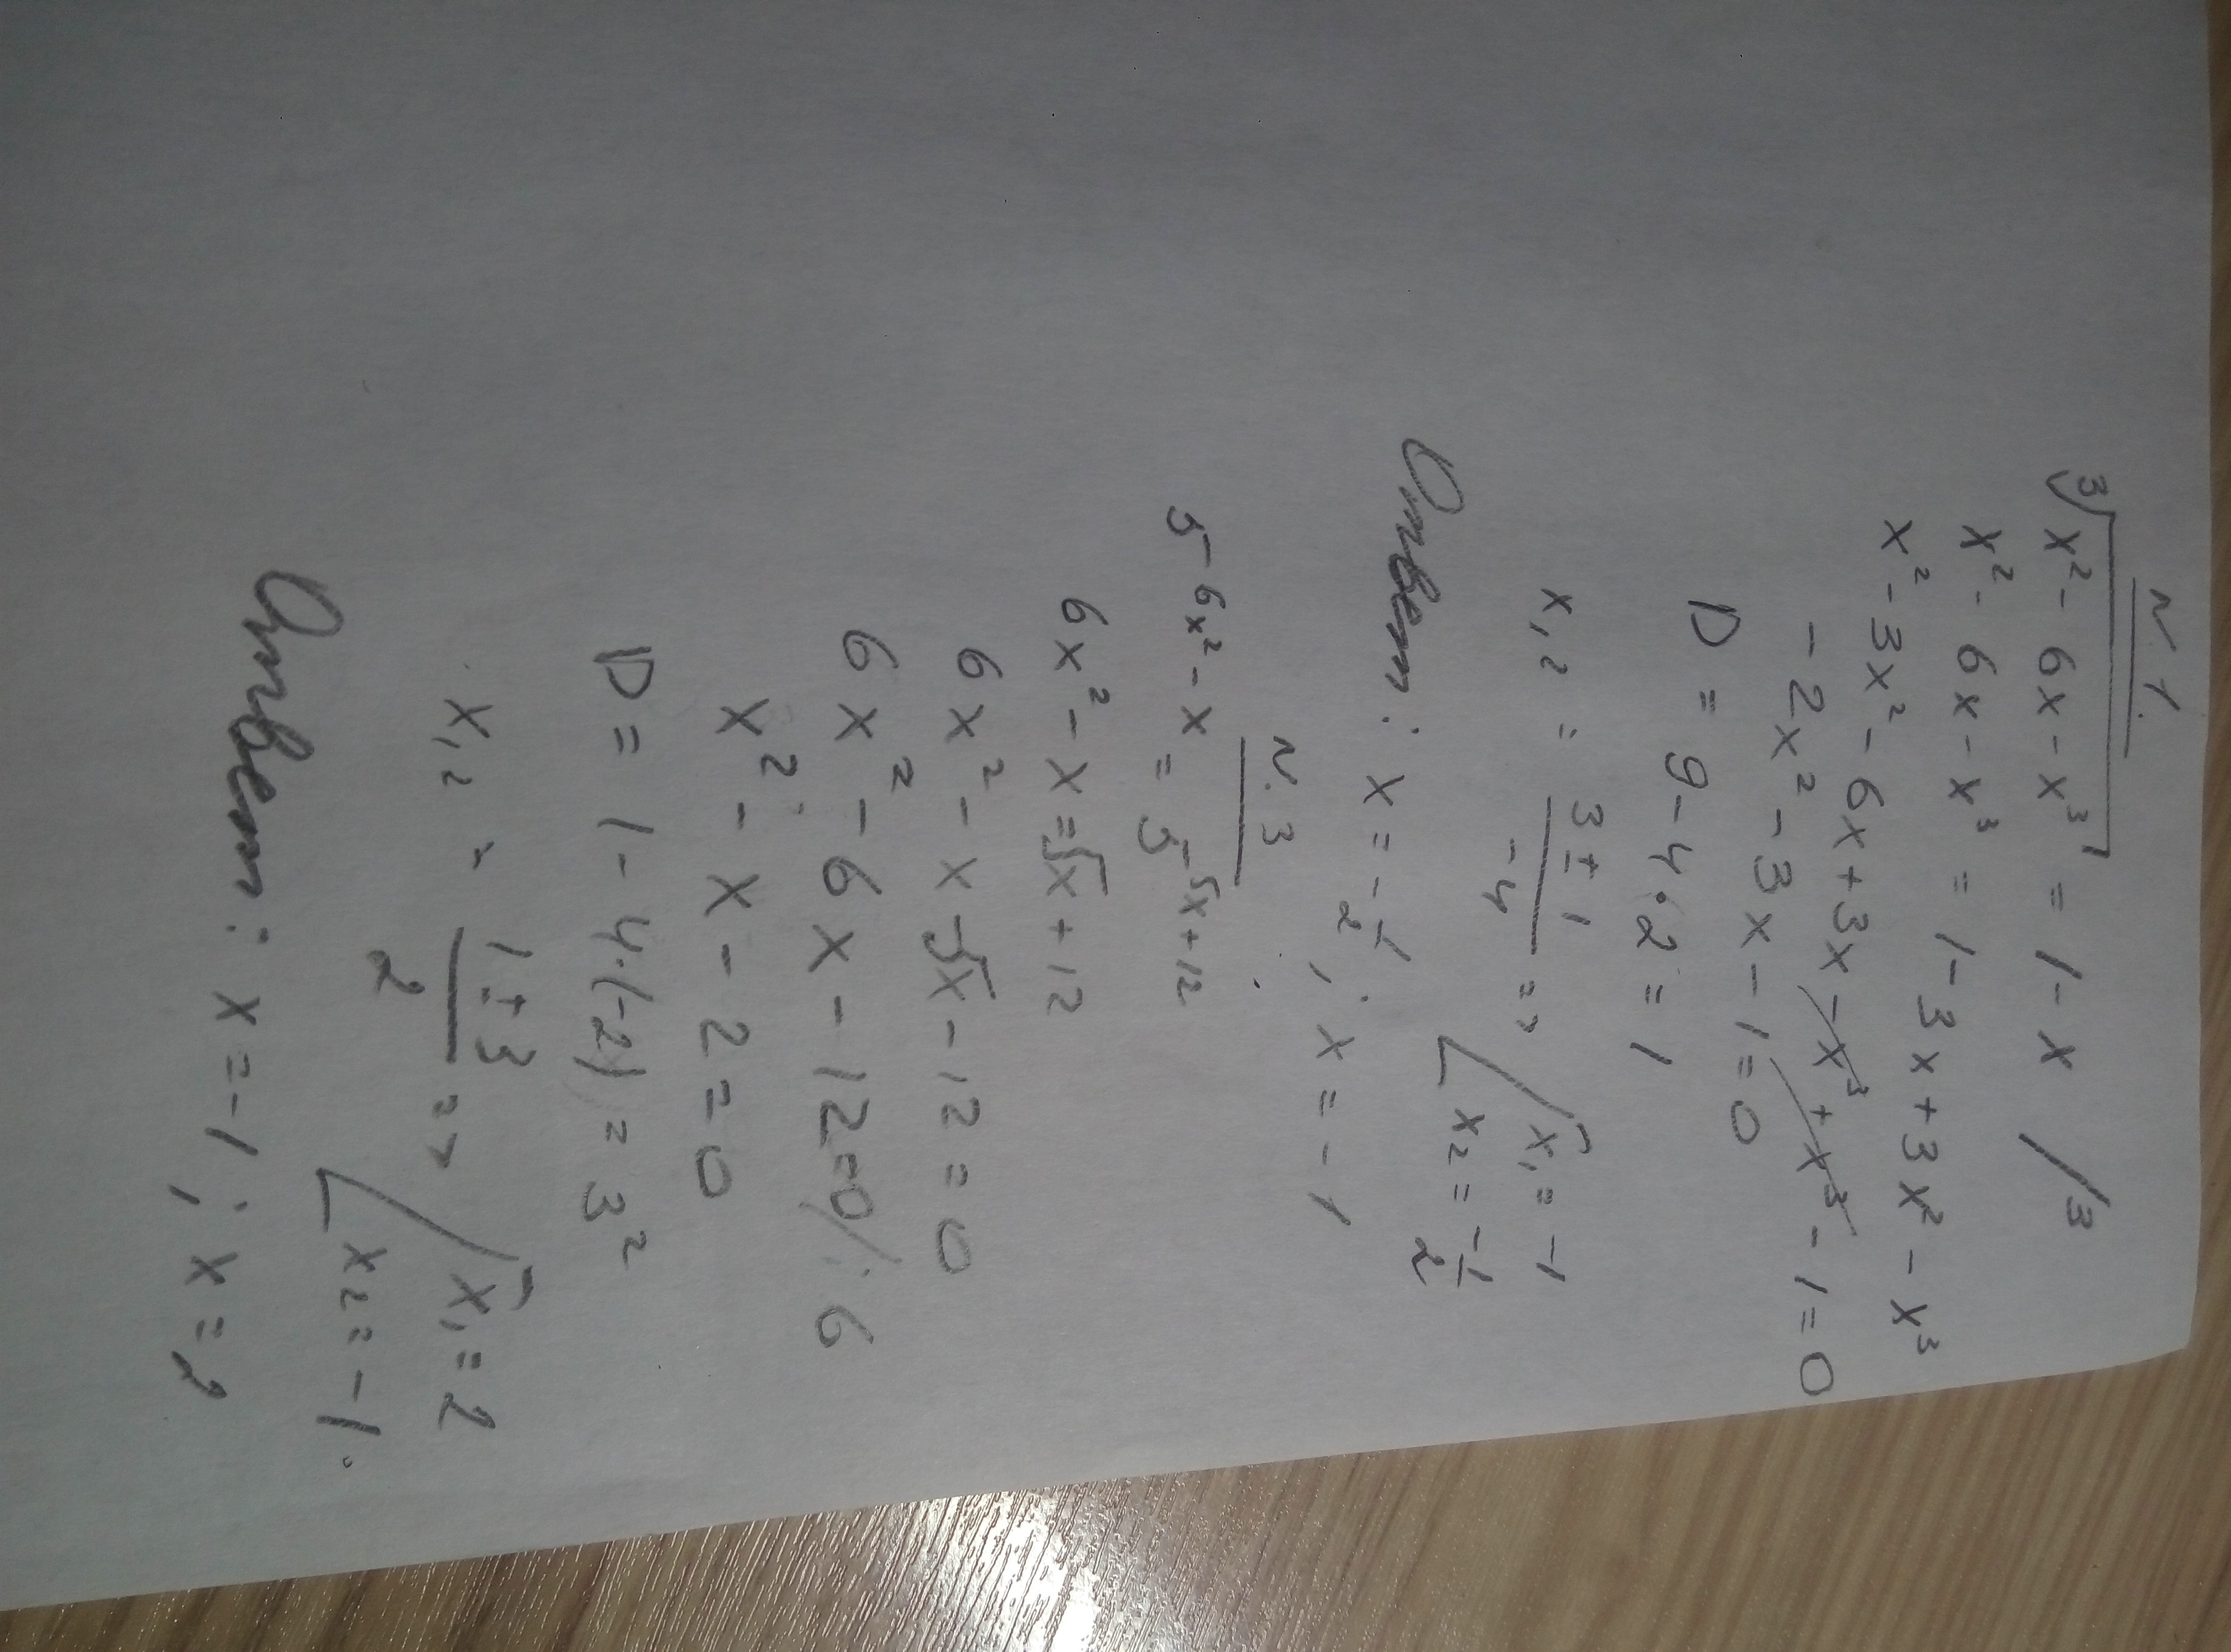 N. 1.
∛(x² - 6x - x³) = 1 - x /³
x² - 6x - x³ = 1 - 3x + 3x² - x³
x² - 3x² - 6x + 3x - x³ + x³ - 1 = 0
- 2x² - 3x - 1 = 0
D = 9 - 4·2 = 1
x₁,₂ = (3 ± 1)/(-4) => [x₁ = -1
x₂ = -1/2
Ответ: x = -1/2; x = -1
N. 3
5^(6x² - x) = 5^(5x + 12)
6x² - x = 5x + 12
6x² - x - 5x - 12 = 0
6x² - 6x - 12 = 0 /: 6
x² - x - 2 = 0
D = 1 - 4·(-2) = 3²
x₁,₂ = (1 ± 3)/2 => [x₁ = 2
x₂ = -1.
Ответ: x = -1; x = 2